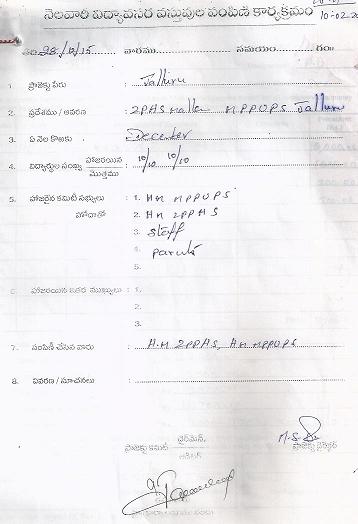 నెలవారి విద్యావసర వస్తువుల పంపిణి కార్యక్రమం
10-02-20
తేది 28/12/15 వారము సమయం గం॥
1. ప్రాజెక్టు పేరు : Jalluru
2. ప్రదేశము / ఆవరణ : ZPHS MPPUPS Jalluru
3. ఏ నెల కొఱకు : December
4. విద్యార్థుల సంఖ్య హాజరయిన 10/10 10/10
మొత్తము
5. హాజరైన కమిటీ సభ్యులు : 1. HM MPPUPS
హోదాతో 2. HM ZPPHS
3. staff
4.
5.
6. హాజరయిన ఇతర ముఖ్యులు : 1.
2.
3.
7. పంపిణీ చేసిన వారు : H.M ZPPHS, HM MPPUPS
8. వివరణ / సూచనలు :
ఛైర్మెన్,
ప్రాజెక్టు కమిటీ ప్రాజెక్టు డైరెక్టర్